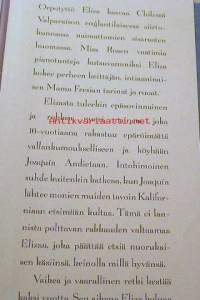 Orpotyttö Eliza kasvaa Chilessä
Valparaison englantilaisessa siirto-
kunnassa naimattomien sisarusten
huomassa. Miss Rosen vaatimin
pianotunteja katsovammiksi Eliza
kokee perheen keittäjän, intiaaninai-
sen Mama Fresian tarinat ja ruoat.
Elizasta tuleekin epäsovinnainen
ja joka
antikvariaattiantikva.net
16-vuotiaana rakastuu epäröimättä
vallankumoukselliseen ja köyhään
Joaquín Andietaan. Intohimoinen
suhde kuitenkin katkeaa, kun Joaquín
lähtee monien muiden tavoin Kalifor-
niaan etsimään kultaa. Tämä ei lan-
nista polttavan rakkauden valtaamaa
Elizaa, joka päättää etsiä nuorukai-
sen käsiinsä, keinolla millä hyvänsä.
Vaikea ja vaarallinen retki kestää
kaksi vuotta. Sen aikana Eliza